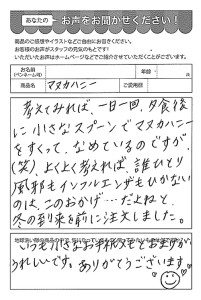 あなたの お声をお聞かせください!
商品のご感想やイラストなどご自由にお書きください。
お客様のお声がスタッフの元気のもとです!
いただいたお声はホームページなどでご紹介させていただくことがございます。
お名前
(ペンネーム可)
年齢
歳
商品名
マヌカハニー
ご愛用歴
考えてみれば、一日一回、夕食後
に小さなスプーンでマヌカハニー
をすくって、なめているのですが、
(笑)、よくよく考えれば、誰ひとり
風邪もインフルエンザもひかない
のは、このおかげ…だよねと、
冬の到来を前に注文しました。
いつも小さなお手紙
うれしいです。ありがとうございます